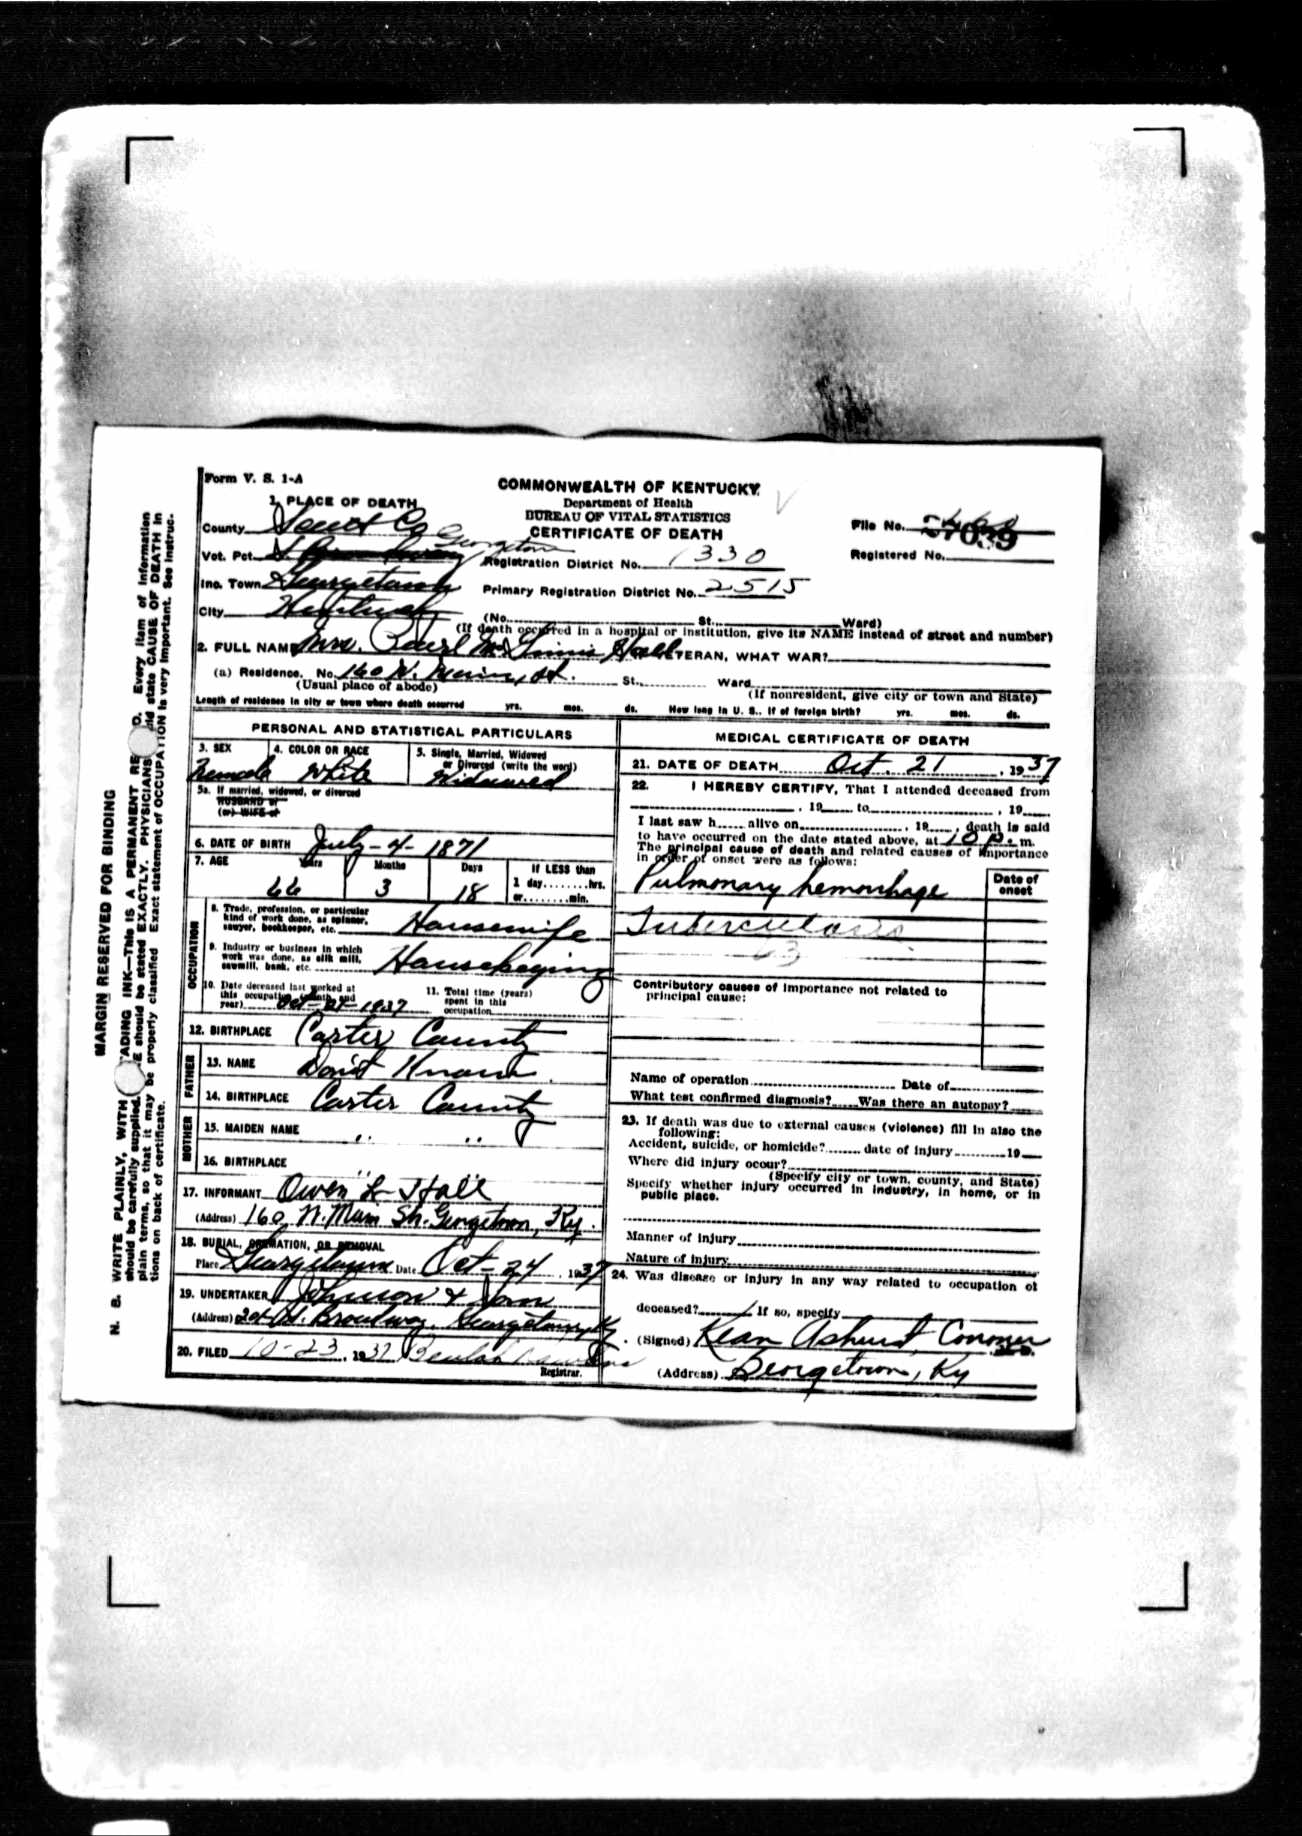 Form V. S. 1-A
COMMONWEALTH OF KENTUCKY
Department of Health
BUREAU OF VITAL STATISTICS
CERTIFICATE OF DEATH
1. PLACE OF DEATH
County Scott Co
Vot. Pct. Georgetown
Inc. Town Georgetown
City Kentucky
File No.
Registered No.
Registration District No. 1330
Primary Registration District No. 2515
(No. St., Ward)
(If death occurred in a hospital or institution, give its NAME instead of street and number)
2. FULL NAME Mrs. Pearl Mc Ginnis Hall VETERAN, WHAT WAR?
(a) Residence. No. 160 N. Main, St. St., Ward
(Usual place of abode) (If nonresident, give city or town and State)
Length of residence in city or town where death occurred yrs. mos. ds. How long in U. S., if of foreign birth? yrs. mos. ds.
PERSONAL AND STATISTICAL PARTICULARS
3. SEX 4. COLOR OR RACE 5. Single, Married, Widowed or Divorced (write the word)
Female White Widowed
5a. If married, widowed, or divorced
HUSBAND of
(or) WIFE of
6. DATE OF BIRTH July-4-1871
7. AGE Years Months Days If LESS than
66 3 18 1 day hrs.
or min.
OCCUPATION
8. Trade, profession, or particular kind of work done, as spinner, sawyer, bookkeeper, etc. Housewife
9. Industry or business in which work was done, as silk mill, sawmill, bank, etc. Housekeeping
10. Date deceased last worked at this occupation (month and year) Oct-21-1937
11. Total time (years) spent in this occupation
12. BIRTHPLACE Carter County
FATHER
13. NAME Don't Know
14. BIRTHPLACE Carter County
MOTHER
15. MAIDEN NAME " "
16. BIRTHPLACE "
17. INFORMANT Owen L. Hall
(Address) 160 N. Main St. Georgetown, Ky.
18. BURIAL, CREMATION, OR REMOVAL
Place Georgetown Date Oct-24, 1937
19. UNDERTAKER Johnson & Son
(Address) Broadway Georgetown, Ky
20. FILED 10-23, 1937 Beulah
Registrar.
MEDICAL CERTIFICATE OF DEATH
21. DATE OF DEATH Oct. 21, 1937
22. I HEREBY CERTIFY, That I attended deceased from
, 19 to , 19
I last saw h alive on , 19 , death is said
to have occurred on the date stated above, at 10 p. m.
The principal cause of death and related causes of importance
in order of onset were as follows:
Date of onset
Pulmonary hemorrhage
Tuberculosis
Contributory causes of importance not related to
principal cause:
Name of operation Date of
What test confirmed diagnosis? Was there an autopsy?
23. If death was due to external causes (violence) fill in also the
following:
Accident, suicide, or homicide? date of injury 19
Where did injury occur?
(Specify city or town, county, and State)
Specify whether injury occurred in industry, in home, or in
public place.
Manner of injury
Nature of injury
24. Was disease or injury in any way related to occupation of
deceased? If so, specify
(Signed) Kean Ashurst, Coroner
(Address) Georgetown, Ky
MARGIN RESERVED FOR BINDING
N. B. WRITE PLAINLY, WITH ADING INK—THIS IS A PERMANENT RE D. Every item of information
should be carefully supplied. E should be stated EXACTLY. PHYSICIANS ld state CAUSE OF DEATH in
plain terms, so that it may be properly classified. Exact statement of OCCUPATION is very important. See instruc-
tions on back of certificate.